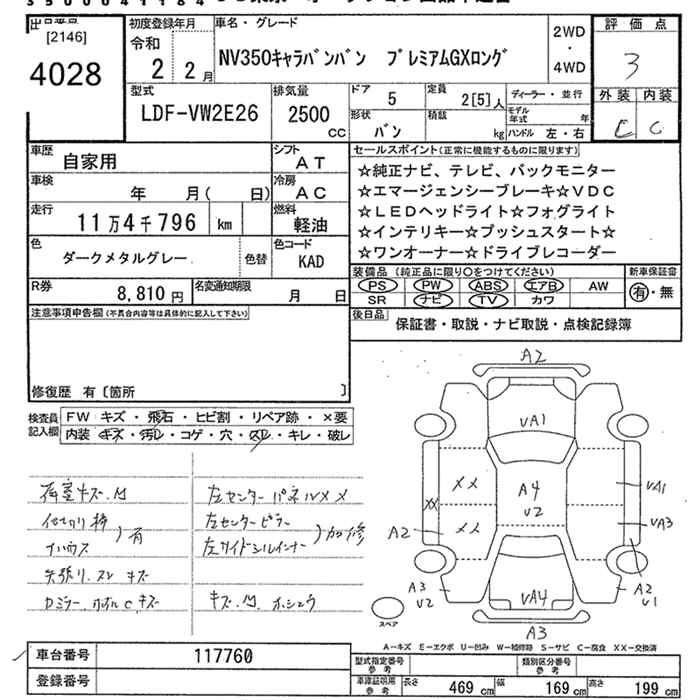 出品番号
[2146]
4028
初度登録年月
令和
2 2月
車名・グレード
NV350キャラバンバン プレミアムGXロング
2WD
・
4WD
評価点
3
外装 内装
C
型式
LDF-VW2E26
排気量
2500
cc
ドア
5
定員
2[5]人
形状
バン
積載
kg
ディーラー・並行
モデル年式 年
ハンドル 左・右
車歴 自家用
シフト AT
車検 年 月( 日)
冷房 AC
走行 11万4千796 km
燃料 軽油
色 ダークメタルグレー 色替
色コード KAD
R券 8,810円
名変通知期限 月 日
セールスポイント(正常に機能するものに限ります)
☆純正ナビ、テレビ、バックモニター
☆エマージェンシーブレーキ☆VDC
☆LEDヘッドライト☆フォグライト
☆インテリキー☆プッシュスタート☆
☆ワンオーナー☆ドライブレコーダー
装備品 (純正品に限り○をつけてください)
新車保証書
PS PW ABS エアB AW
有・無
SR ナビ TV カワ
後日品
保証書・取説・ナビ取説・点検記録簿
注意事項申告欄(不具合内容等は具体的に記入して下さい)
修復歴 有〔箇所 〕
検査員記入欄
FW キズ・飛石・ヒビ割・リペア跡・×要
内装 キズ・汚レ・コゲ・穴・スレ・キレ・破レ
荷室キズ.凹
左センターパネルXX
左センターピラー
左サイドシルインナー
加修
有
キズ
Dミラー
キズ.凹
A2
VA1
XX
A4
V2
XX
XX
A2
VA1
VA3
A3
V2
VA4
A2
V1
A3
スペア
A-キズ E-エクボ U-凹み W-補修跡 S-サビ C-腐食 XX-交換済
車台番号 117760
登録番号
型式指定番号 参考
類別区分番号 参考
車庫証明用 参考
長さ 469 cm
幅 169 cm
高さ 199 cm